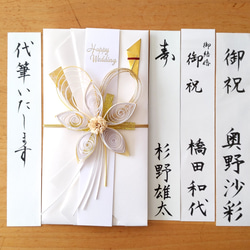 代筆いたします
Happy
Wedding
寿
杉野雄太
御結婚
御祝
橋田和代
御祝
奥野沙彩